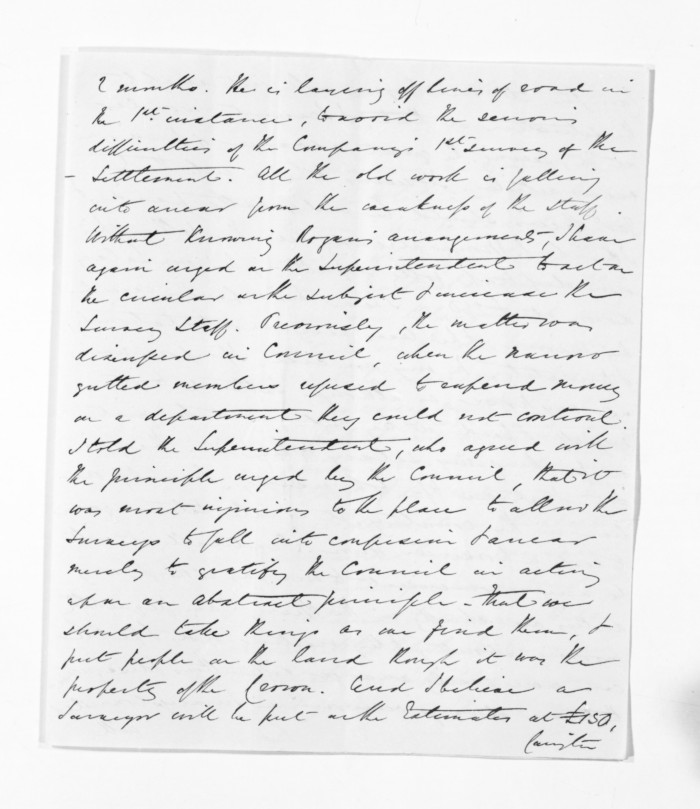 2 months. He is laying off lines of road in
the 1st instance, to avoid the serious
difficulties of the Company's 1st survey of the
Settlement. All the old work is falling
into arrear from the weakness of the staff.
Without knowing Rogan's arrangements, I have
again urged on the Superintendent to act on
the circular on the subject & increase the
Survey Staff. Previously, the matter was
discussed in Council, when the narrow
gutted members refused to expend money
on a department they could not control.
I told the Superintendent, who agreed with
the principle urged by the Council, that it
was most injurious to the place to allow the
Surveys to fall into confusion & arrear
merely to gratify the Council in acting
upon an abstract principle - that we
should take things as we find them, &
put people on the land though it was the
property of the Crown. And I believe a
Surveyor will be put on the Estimates at £150,